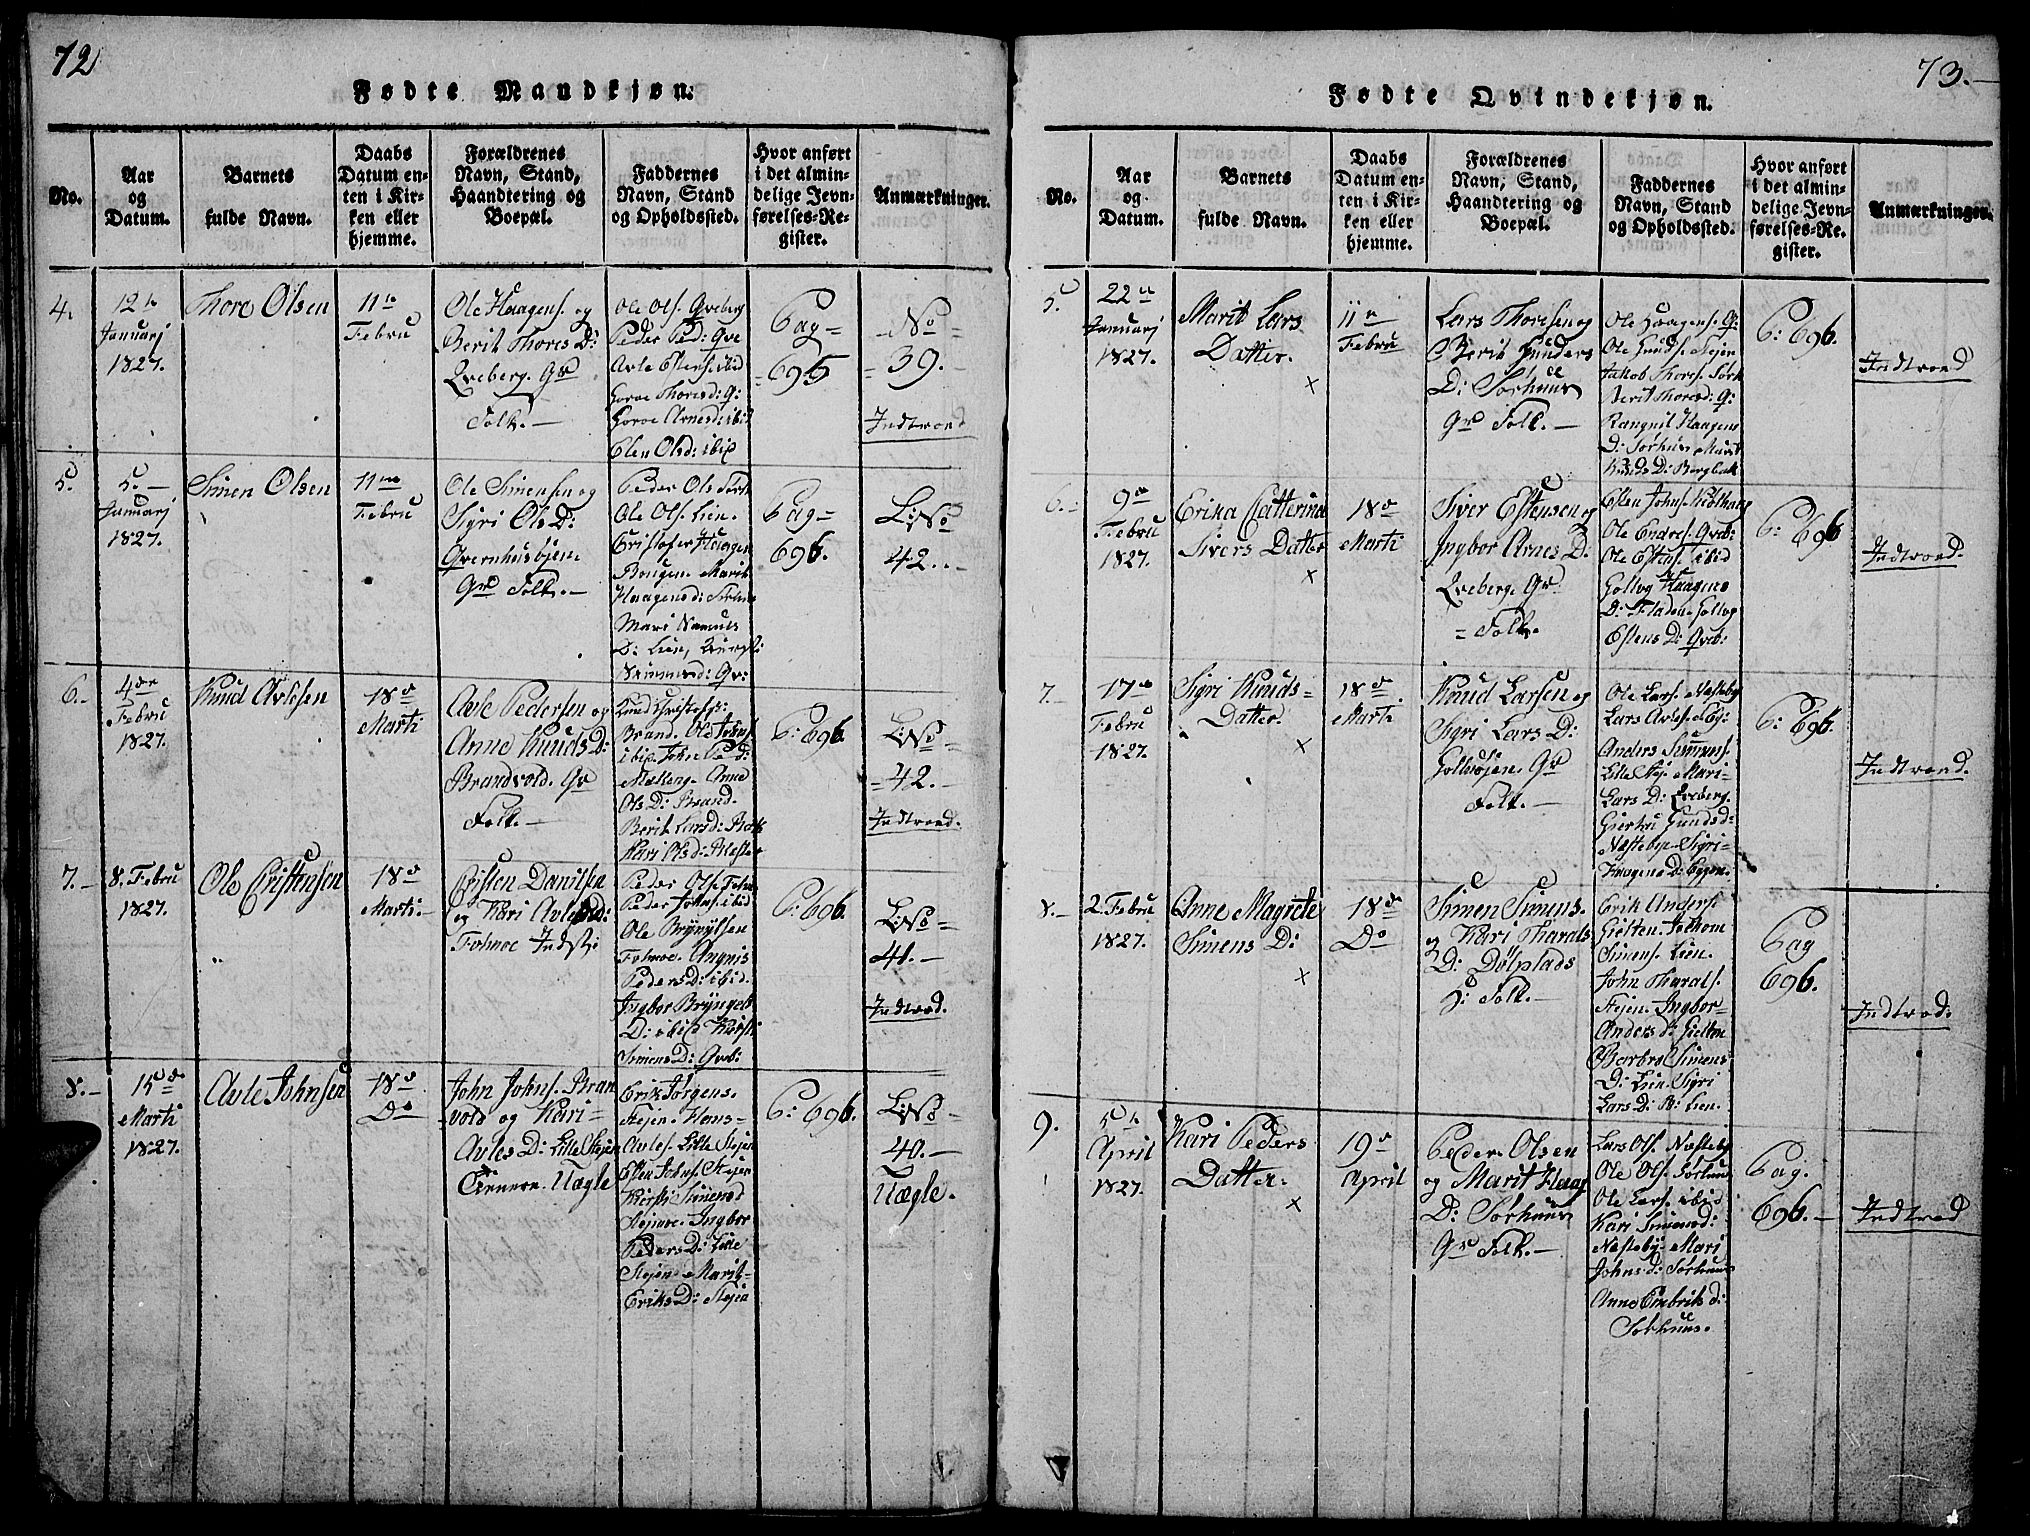 72
Fødte Mandkjøn.
No.
Aar
og
Datum.
Barnets
fulde Navn.
Daabs
Datum en-
ten i Kir-
ken eller
hjemme.
Forældrenes
Navn, Stand,
Haandtering og
Boepæl.
Faddernes
Navn, Stand
og Opholdssted.
Hvor anført
i det almin-
delige Jevn-
førelses-Re-
gister.
Anmærkninger.
4.
12te
Januarj
1827.
Thore Olsen
11te
Febru
Ole Haagens. og
Berit Thores D:
Qveberg. Gr
Folk.
Ole Ols. Qveberg
Peder Ped: Qve
Avle Estens. ibid
Thores d: Q:
Arnes d: ibid
Elen Ols d: ibid
Pag=
695
No
39.
Indtrond
5.
5.
Januarj
1827.
Simen Olsen
11te
Febru
Ole Simensen og
Sigri Ols D:
Qvernhusøjen.
Gr Folk.
Peder Ols
Ole Ols. Lien.
Cristofer Haagen
Marit
Haagens d:
Mari
D: Lien,
d: Qv:
Pag=
696.
L: No
42.
6.
4de
Febru
1827.
Knud Avlesen
18de
Marti
Avle Pedersen og
Anne Knuds D:
Brandvold. Gr
Folk.
Brand. Ole
ibid John Ped:
Anne
Ols D: Brand.
Berit Lars d:
Kari Ols d:
P: 696
L: No
42.
Indtrond.
7.
8. Febru
1827.
Ole Cristensen
18de
Marti
Cristen Danilsen
og Kari Avles d:
Folmoe Indst:
Peder Ols. Folm
Peder Johns. ibid
Ole Brynylsen
Folmoe. Angnis
Peders D: ibid.
Ingbor Bryngels
D: ibid Kirsti
Simens D: Qveb:
P: 696
L: No
41.
Indtrond.
8.
15de
Marti
1827.
Avle Johnsen
18de
Do
John Johns. Bran
vold og Kari
Avles D: Lille Stejen
Tienere. Uægte
Erik Jørgens.
Stejen. Hans
Avles. Lille Stejen
Johns. Stejen
Kirsti Simens d
Stejene. Ingbor
Peders D: Lille
Stejen Marit
Eriks D: Stejen
P: 696.
L: No
40.
Uægte.
73.
Fødte Qvindekjøn.
No.
Aar
og
Datum.
Barnets
fulde Navn.
Daabs
Datum en-
ten i Kir-
ken eller
hjemme.
Forældrenes
Navn, Stand,
Haandtering og
Boepæl.
Faddernes
Navn, Stand
og Opholdssted.
Hvor anført
i det almin-
delige Jevn-
førelses-Re-
gister.
Anmærkninger.
5.
22de
Januarj
1827.
Marit Lars
Datter.
x
11te
Febru
Lars Thoresen og
Berit Gunders
D: Sørhuus
Gr Folk.
Ole Haagens. Q:
Ole Stejen
Jakob Thores. Sørh
Berit Thores d: Q:
Rangnil Haagens
D: Sørhuus Marit
D:
P: 696.
Indtrond
6.
9de
Febru
1827.
Erika Catterina
Sivers Datter
x
18de
Marti
Siver Estensen og
Ingbor Arnes D:
Qveberg. Gr
Folk.
Esten Johns.
Ole Endres. Qveb:
Ole Estens. ibid
Gollug Haagens
D: Fladen. Gollug
Estens D: Qveb:
P: 696
Indtrond.
7.
17de
Febru
1827.
Sigri Knuds
Datter.
x
18de
Marti
Knud Larsen og
Sigri Lars D:
Gr
Folk.
Ole Lars. Næsteby
Lars Avles.
Anders Simens.
Lille Stej. Mari
Lars D: Qveberg.
Giertru Gunds d:
Næsteby. Sigri
Haagens D:
P: 696.
Indtrond.
8.
2. Febru
1827.
Anne Magrete
Simens D:
x
18de
Do
Simen Simens.
og Kari Tharals
D: Dølplads
J: Folk.
Erik Anders.
Gielten.
Simens. Lien.
John Tharals.
Stejen. Ingbor
Anders d: Gielten
Barbro Simens
D: Lien. Sigri
Lars D: Lien.
Pag
696.
Indtrod.
9.
5te
April
1827.
Kari Peders
Datter.
x
19de
April
Peder Olsen
og Marit Haag
D: Sørhuus
Gr Folk.
Lars Ols. Næsteby
Ole Ols. Sørhuus
Ole Lars. ibid
Kari Simens d:
Næsteby Mari
Johns d: Sørhuus
Anne Embrik d:
Sørhuus.
Pag.
696.
Indtrod